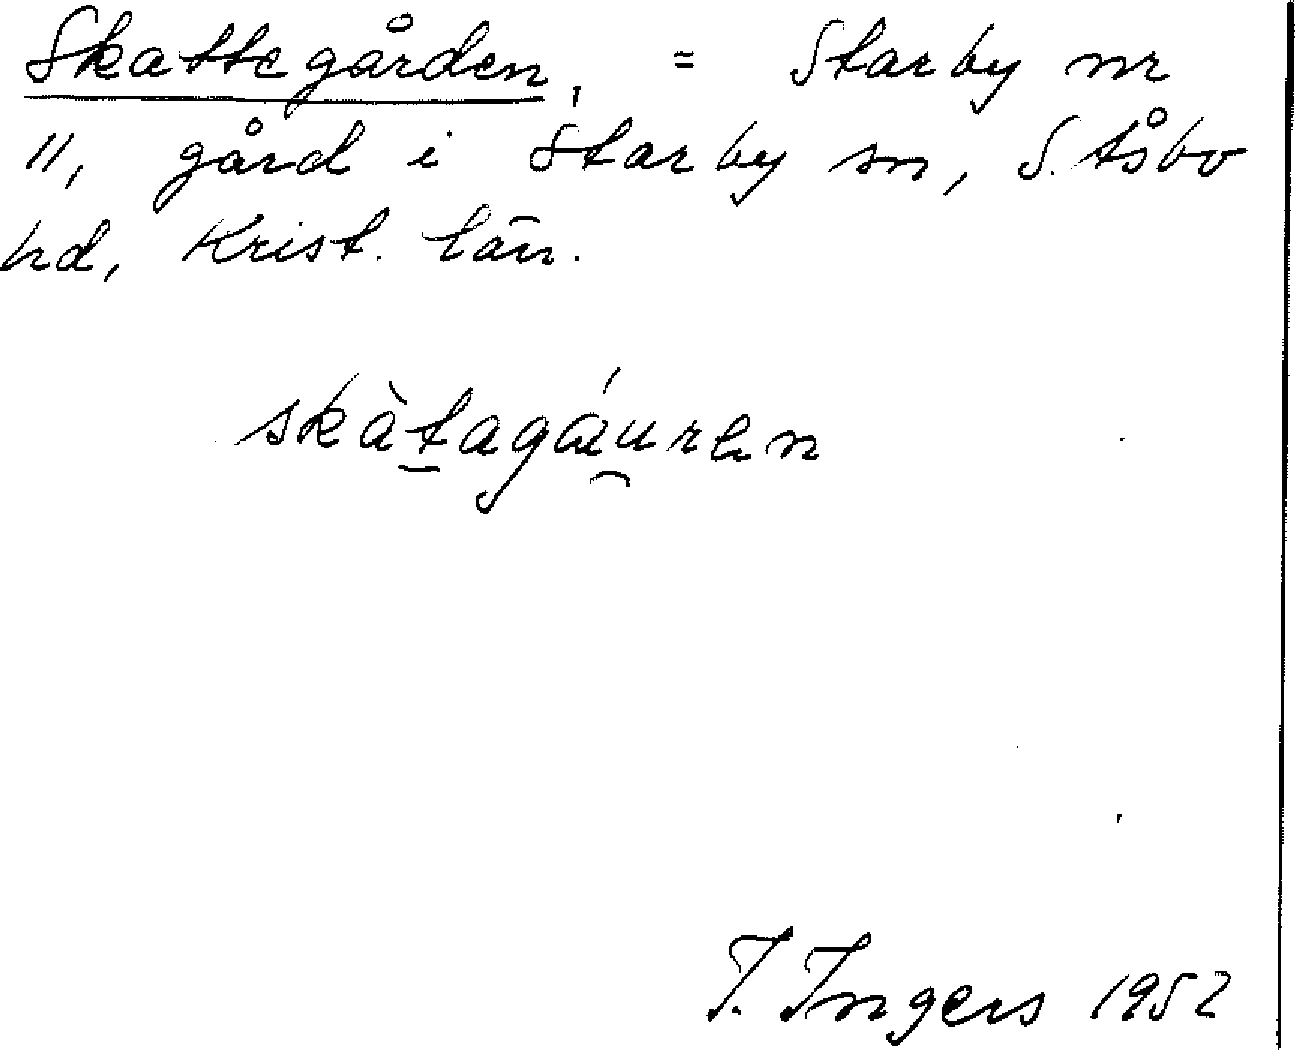 Skattegården, = Starby nr
11, gård i Starby sn, S. Åsbo
hd, Krist. län.
skàt̲agáu̯ren
I. Ingers 1952